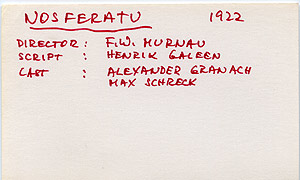 NOSFERATU 1922
DIRECTOR : F.W. MURNAU
SCRIPT : HENRIK GALEEN
CAST : ALEXANDER GRANACH
MAX SCHRECK